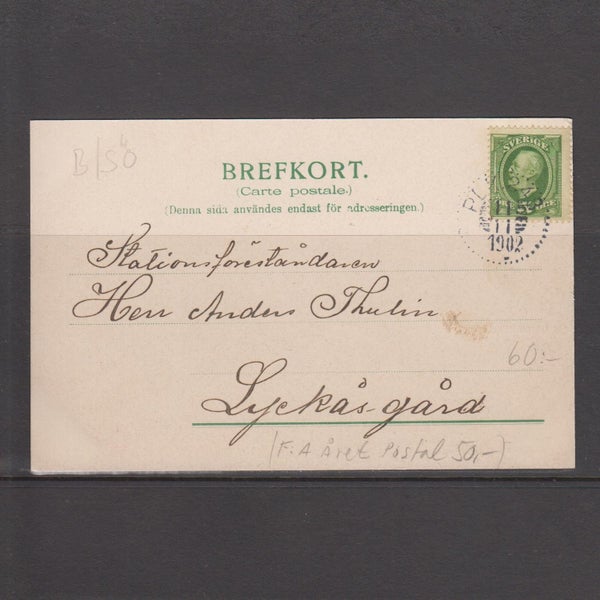 B/SÖ
BREFKORT.
(Carte postale.)
(Denna sida användes endast för adresseringen.)
SVERIGE
11
11
1902
Stationsföreståndaren
Herr Anders Thulin
60:-
Lyckås-gård
(F.A Året Postal 50,-)